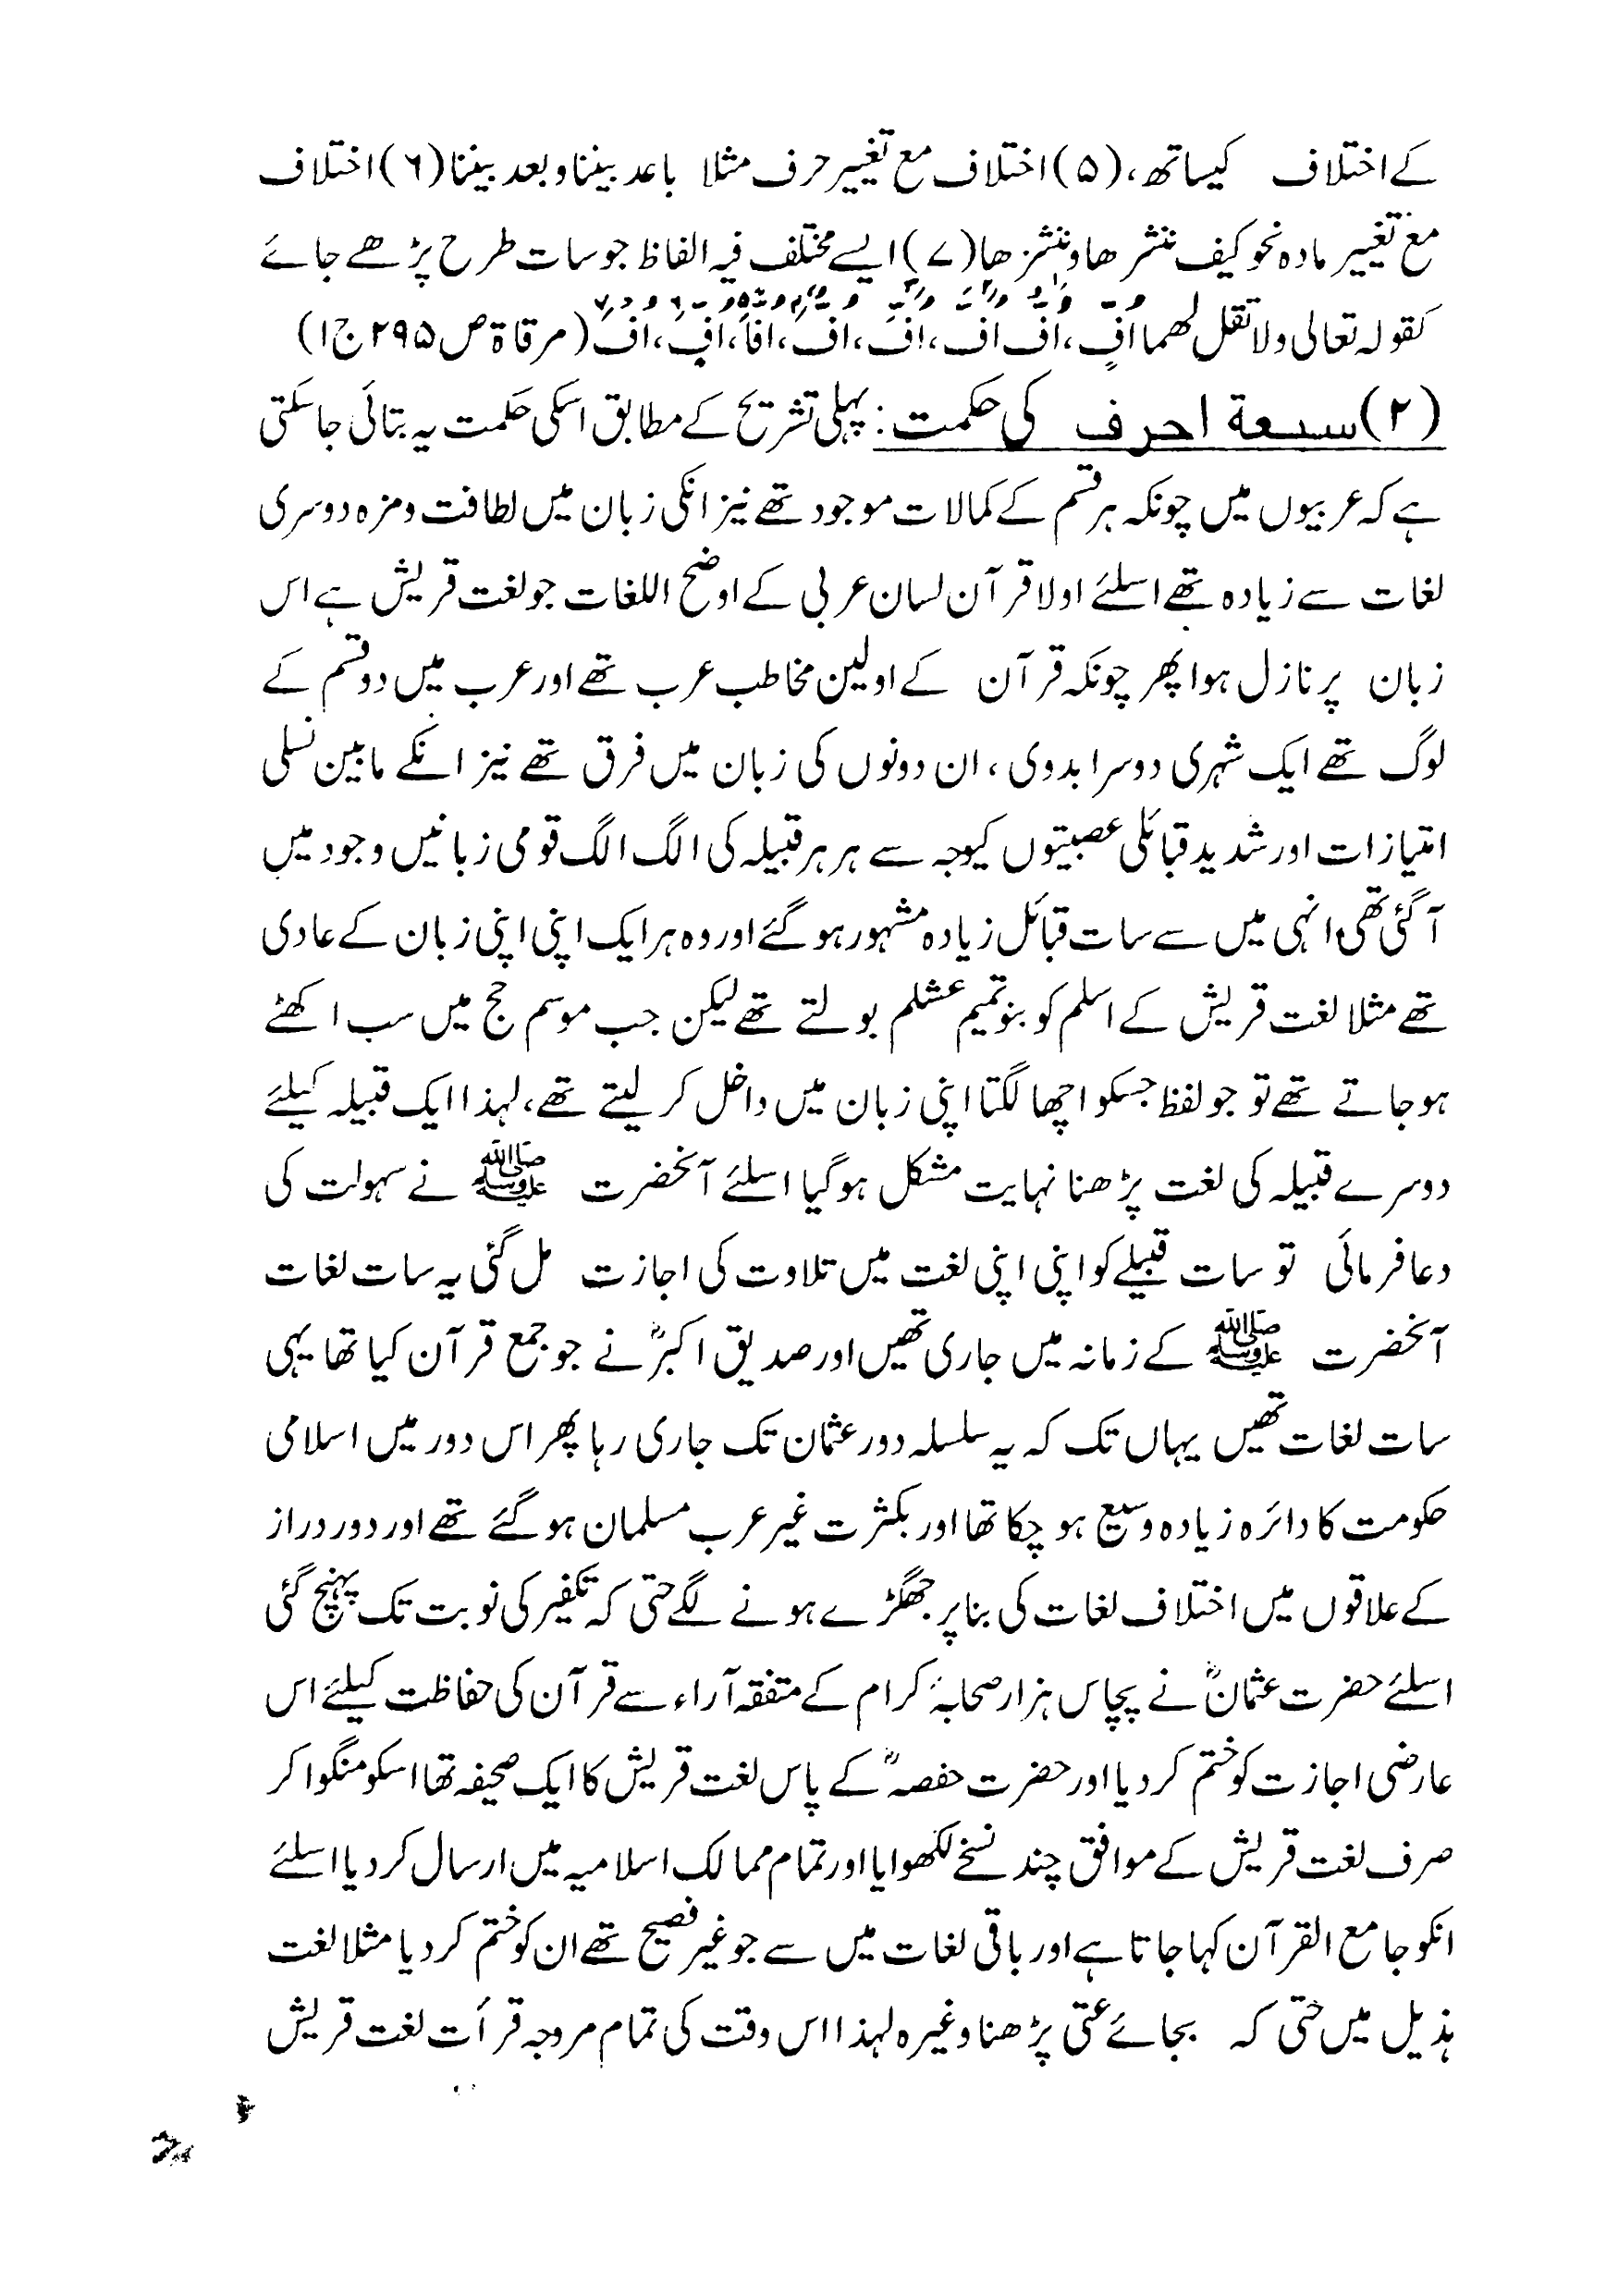 کے اختلاف کیساتھ، (۵) اختلاف مع تغییر حرف مثلا باعد بیننا و بعد بیننا (٦) اختلاف
مع تغییر مادہ نحو کیف ننشر ھا و ننشز ھا (۷) ایسے مختلف فیہ الفاظ جو سات طرح پڑھے جائے
کقولہ تعالی ولا تقل لھما افٍ، اف اف، اف، اف، افا، افٍ، اف (مرقاۃ ص ۲۹۵ ج ۱)
(۲) سبعة احرف کی حکمت: پہلی تشریح کے مطابق اسکی حکمت یہ بتائی جاسکتی
ہے کہ عربیوں میں چونکہ ہر قسم کے کمالات موجود تھے نیز انکی زبان میں لطافت ومزہ دوسری
لغات سے زیادہ تھے اسلئے اولا قرآن لسان عربی کے اوضح اللغات جو لغت قریش ہے اس
زبان پر نازل ہوا پھر چونکہ قرآن کے اولین مخاطب عرب تھے اور عرب میں دو قسم کے
لوگ تھے ایک شہری دوسرا بدوی، ان دونوں کی زبان میں فرق تھے نیز انکے مابین نسلی
امتیازات اور شدید قبائلی عصبیتوں کیوجہ سے ہر ہر قبیلہ کی الگ الگ قومی زبانیں وجود میں
آگئی تھی انہی میں سے سات قبائل زیادہ مشہور ہو گئے اور وہ ہر ایک اپنی اپنی زبان کے عادی
تھے مثلا لغت قریش کے اسلم کو بنوتمیم عشلم بولتے تھے لیکن جب موسم حج میں سب اکھٹے
ہو جاتے تھے تو جو لفظ جسکو اچھا لگتا اپنی زبان میں داخل کر لیتے تھے، لہذا ایک قبیلہ کیلئے
دوسرے قبیلہ کی لغت پڑھنا نہایت مشکل ہو گیا اسلئے آنحضرت ﷺ نے سہولت کی
دعا فرمائی تو سات قبیلے کو اپنی اپنی لغت میں تلاوت کی اجازت مل گئی یہ سات لغات
آنحضرت ﷺ کے زمانہ میں جاری تھیں اور صدیق اکبرؓ نے جو جمع قرآن کیا تھا یہی
سات لغات تھیں یہاں تک کہ یہ سلسلہ دور عثمان تک جاری رہا پھر اس دور میں اسلامی
حکومت کا دائرہ زیادہ وسیع ہو چکا تھا اور بکثرت غیر عرب مسلمان ہو گئے تھے اور دور دراز
کے علاقوں میں اختلاف لغات کی بنا پر جھگڑے ہونے لگے حتی کہ تکفیر کی نوبت تک پہنچ گئی
اسلئے حضرت عثمانؓ نے پچاس ہزار صحابۂ کرام کے متفقہ آراء سے قرآن کی حفاظت کیلئے اس
عارضی اجازت کو ختم کر دیا اور حضرت حفصہؓ کے پاس لغت قریش کا ایک صحیفہ تھا اسکو منگوا کر
صرف لغت قریش کے موافق چند نسخے لکھوایا اور تمام ممالک اسلامیہ میں ارسال کر دیا اسلئے
انکو جامع القرآن کہا جاتا ہے اور باقی لغات میں سے جو غیر فصیح تھے ان کو ختم کر دیا مثلا لغت
ہذیل میں حتی کہ بجائے عتی پڑھنا وغیرہ لہذا اس وقت کی تمام مروجہ قرأت لغت قریش